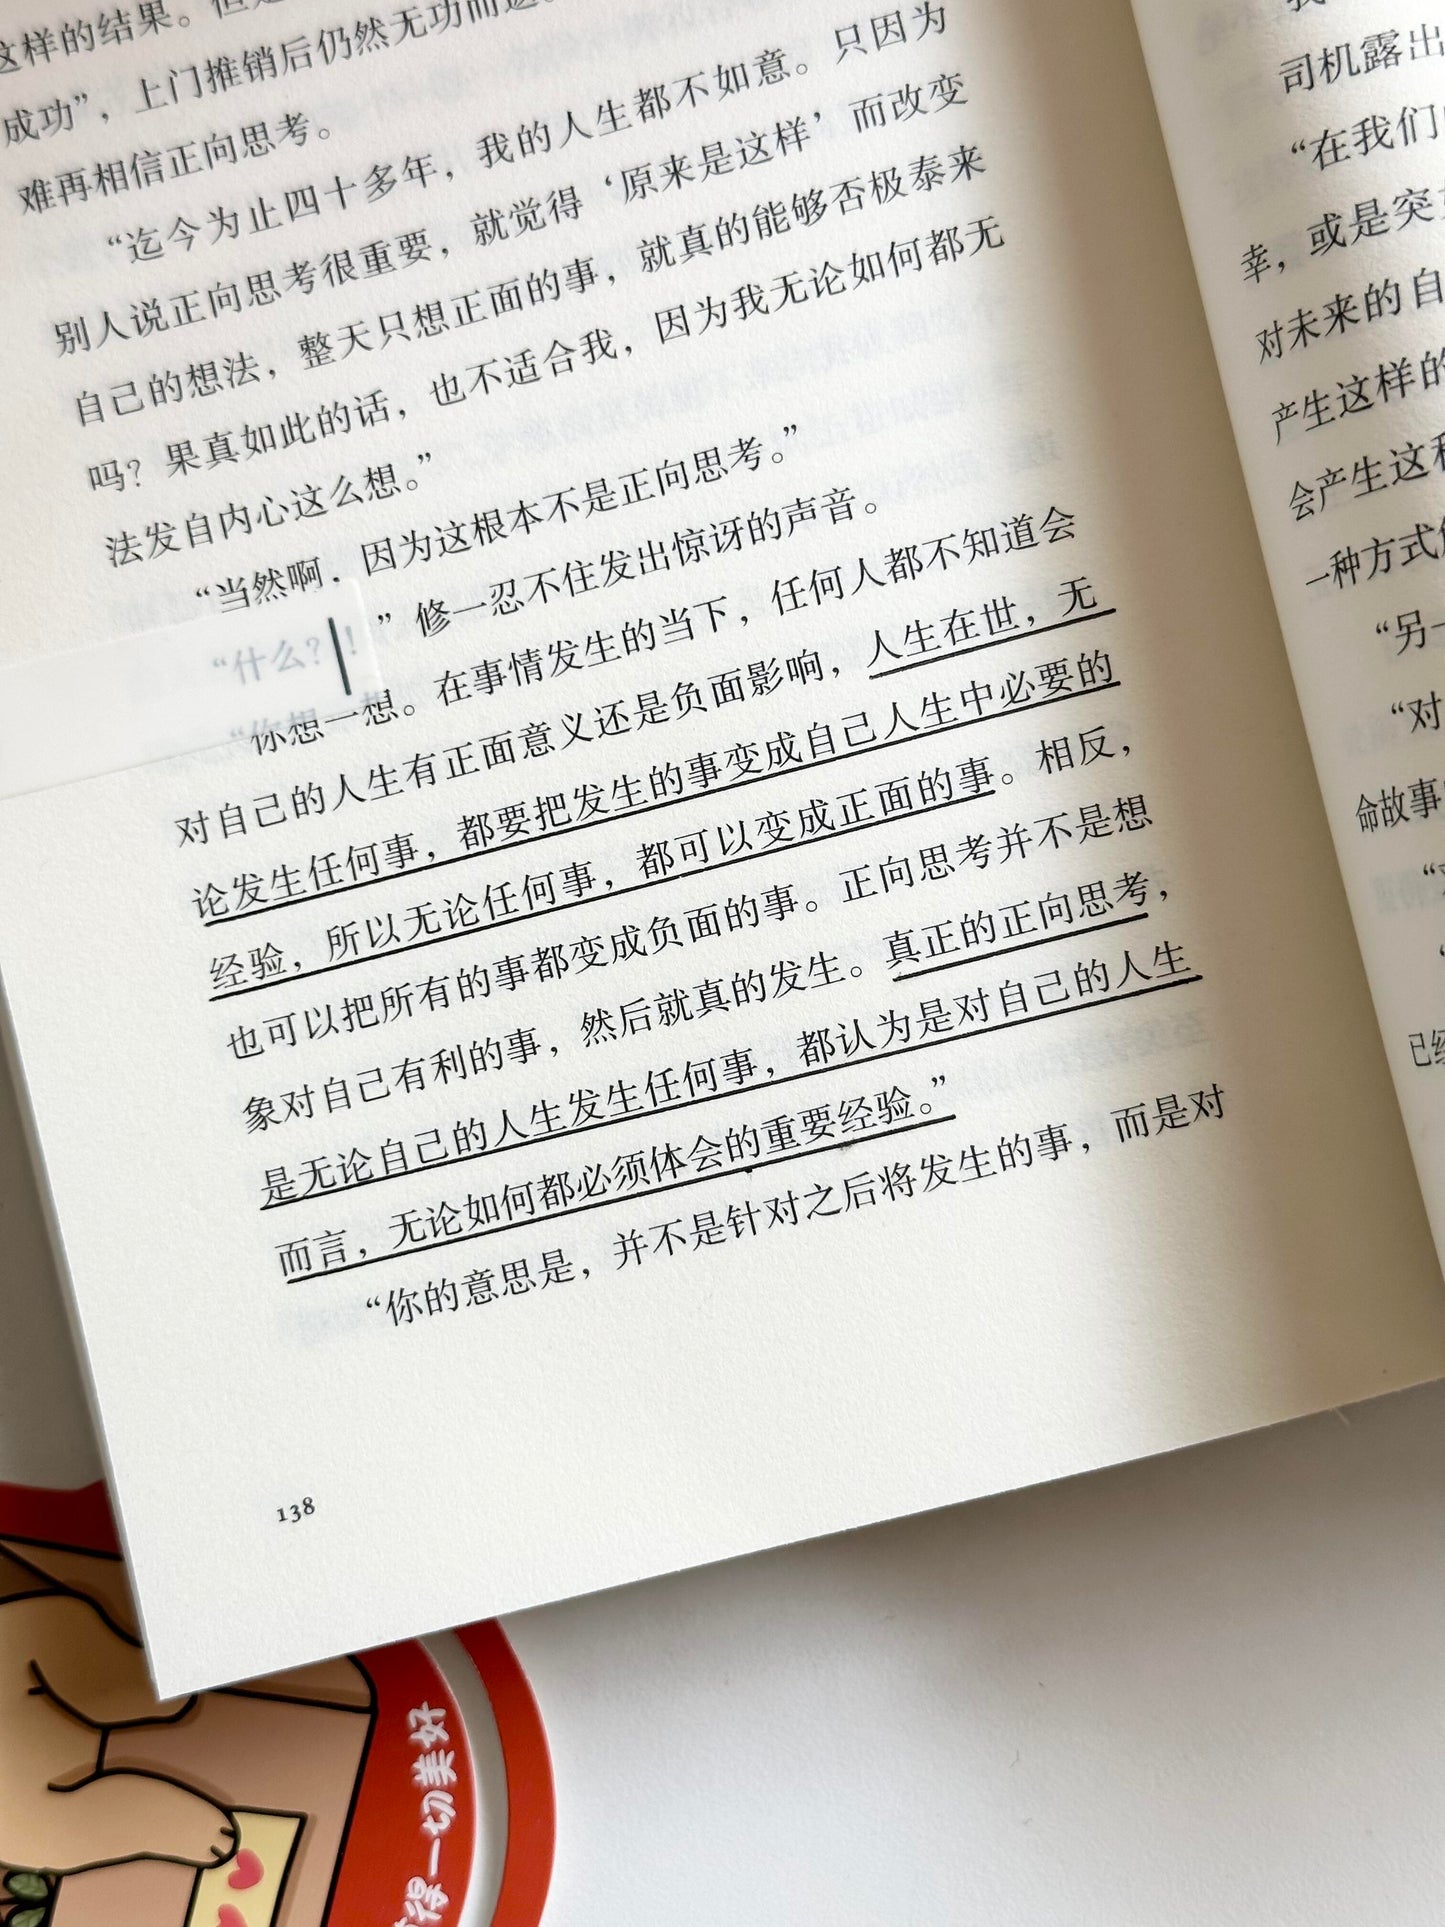 这样的结果。但是
成功”，上门推销后仍然无功而返。
难再相信正向思考。
“迄今为止四十多年，我的人生都不如意。只因为
别人说正向思考很重要，就觉得‘原来是这样’而改变
自己的想法，整天只想正面的事，就真的能够否极泰来
吗？果真如此的话，也不适合我，因为我无论如何都无
法发自内心这么想。”
“当然啊，因为这根本不是正向思考。”
“什么？！”修一忍不住发出惊讶的声音。
“你想一想。在事情发生的当下，任何人都不知道会
对自己的人生有正面意义还是负面影响，人生在世，无
论发生任何事，都要把发生的事变成自己人生中必要的
经验，所以无论任何事，都可以变成正面的事。相反，
也可以把所有的事都变成负面的事。正向思考并不是想
象对自己有利的事，然后就真的发生。真正的正向思考，
是无论自己的人生发生任何事，都认为是对自己的人生
而言，无论如何都必须体会的重要经验。”
“你的意思是，并不是针对之后将发生的事，而是对
138
司机露出
“在我们
幸，或是突
对未来的自
产生这样的
会产生这种
一种方式
“另一
“对
命故事
已经
得一切美好